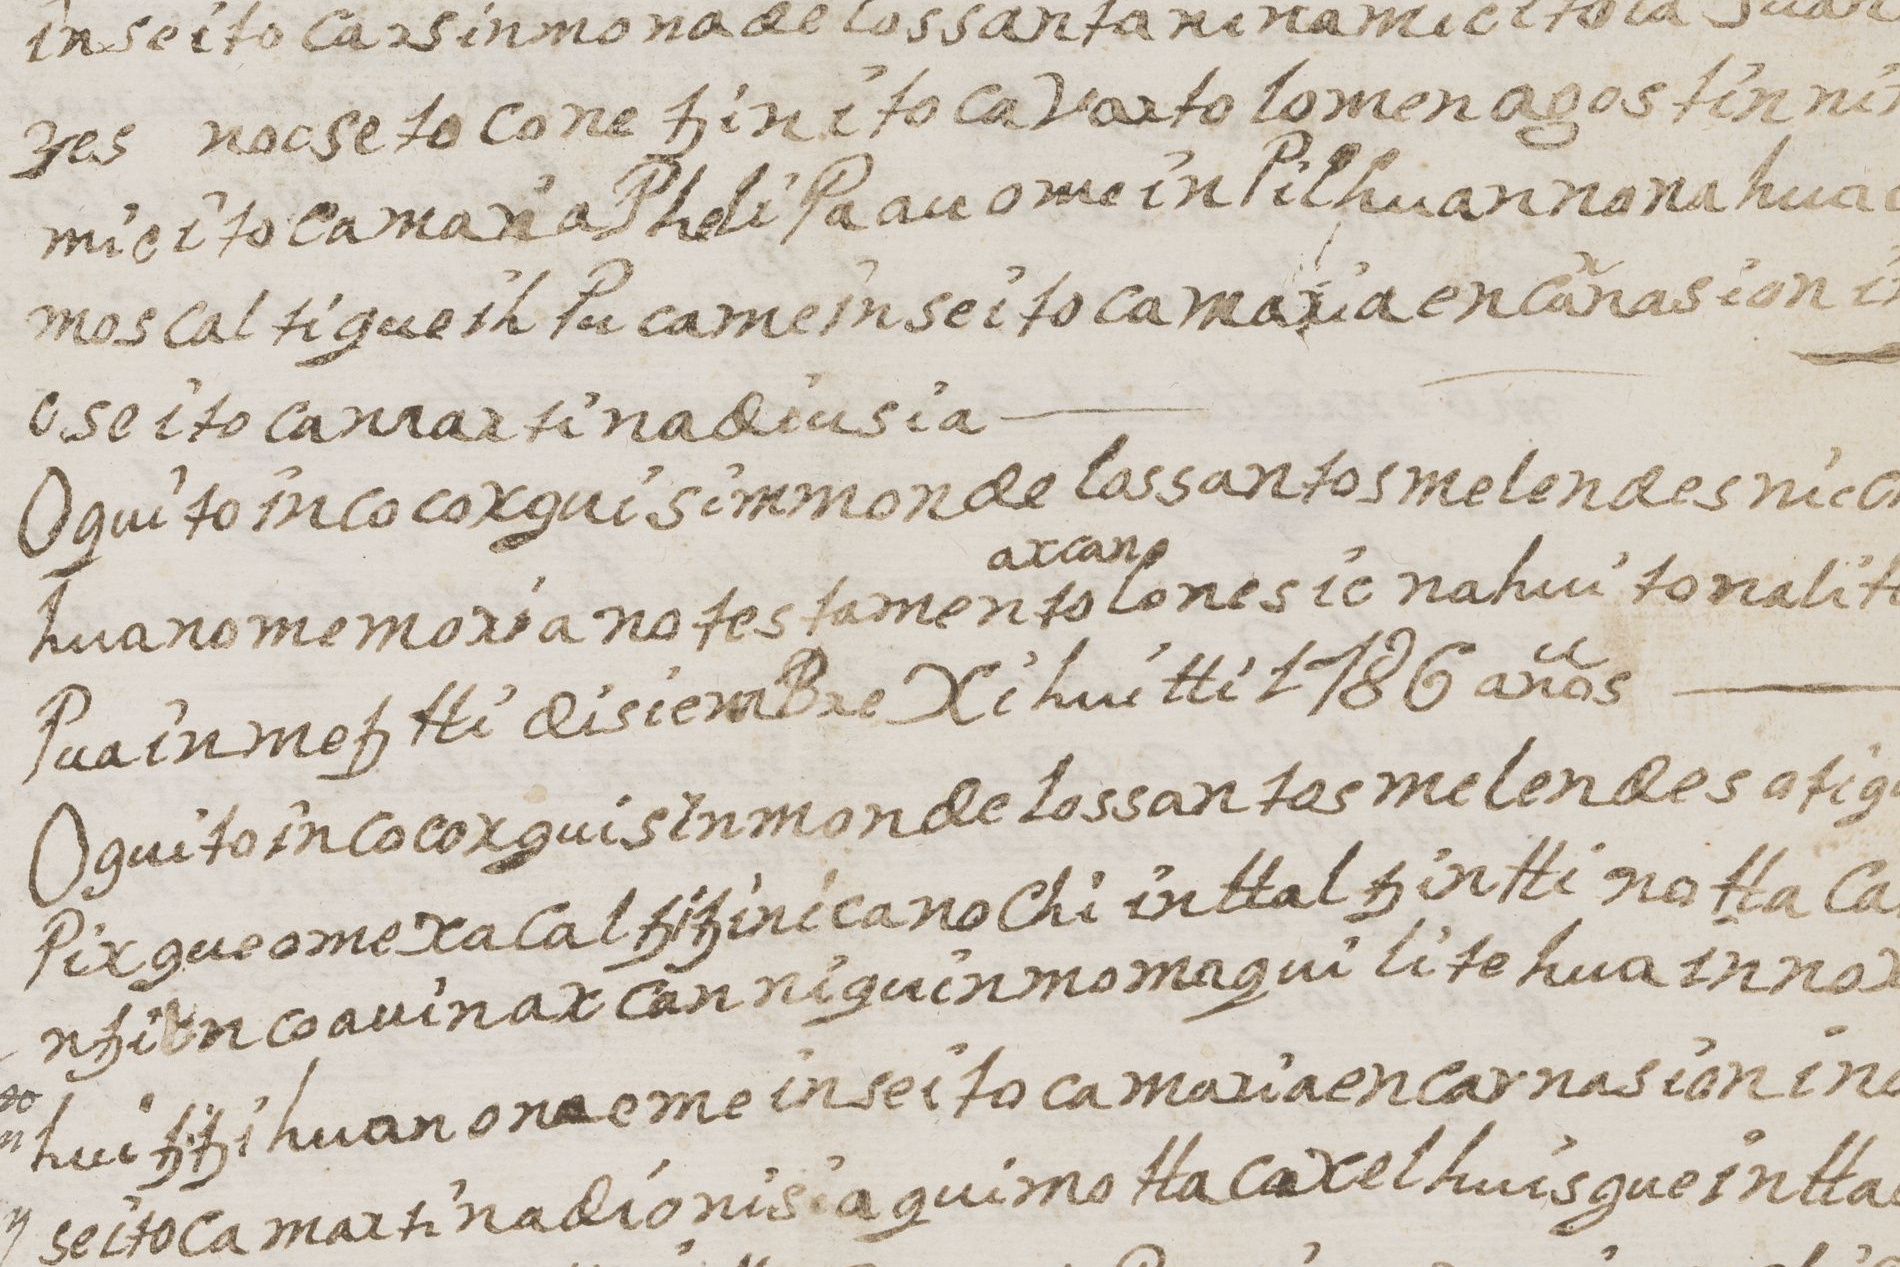 in seito carsinmona de los santa ninamicitoca Juan
res nocse toconetzin itoca Vartolomen agostin nin
micitoca maria PheliPa au ome inPilhuan nonahuac
moscaltigueih Pucame in seitoca maria encãrnasion in
o seitoca martina diusia
Oguito in cocoxgui simmon de los santos melendes nicch
axcan
huano memoria no testamento lones ic nahui tonalitt
Pua in metztti disiembre Xihuitti 1786 años
Oguito in cocoxgui sinmon de los santos melendes otigu
Pixgue ome xacaltzitzin icano Chi inttaltzintti nottaCa
ntziinco auin axcan niguinmomaguilitehua in nox
huitztzihuan oname ome in seitoca maria encarnasion in o
seitoca martina dionisia guimottacaxelhuisgue intta